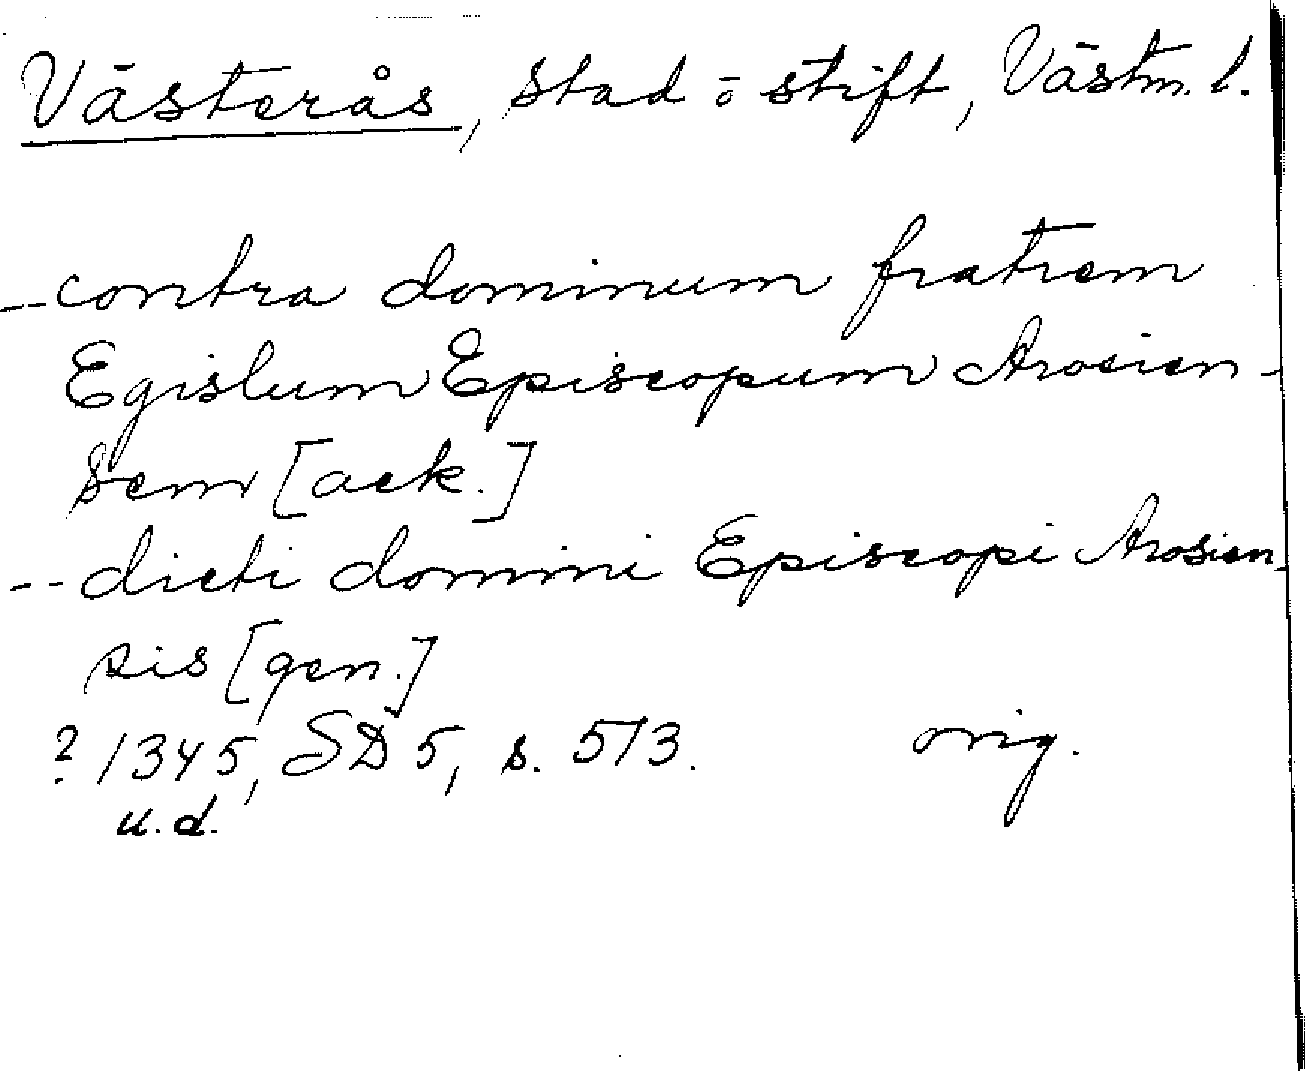 Västerås, stad o stift, Västm. l.
-- contra dominum fratrem
Egislum Episcopum Arosien-
sem [ack.]
-- dicti domini Episcopi Arosien-
sis [gen.]
? 1345, SD 5, s. 513. orig.
u.d.